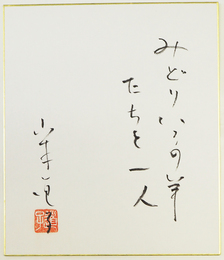 みどりいろの羊
たちと一人